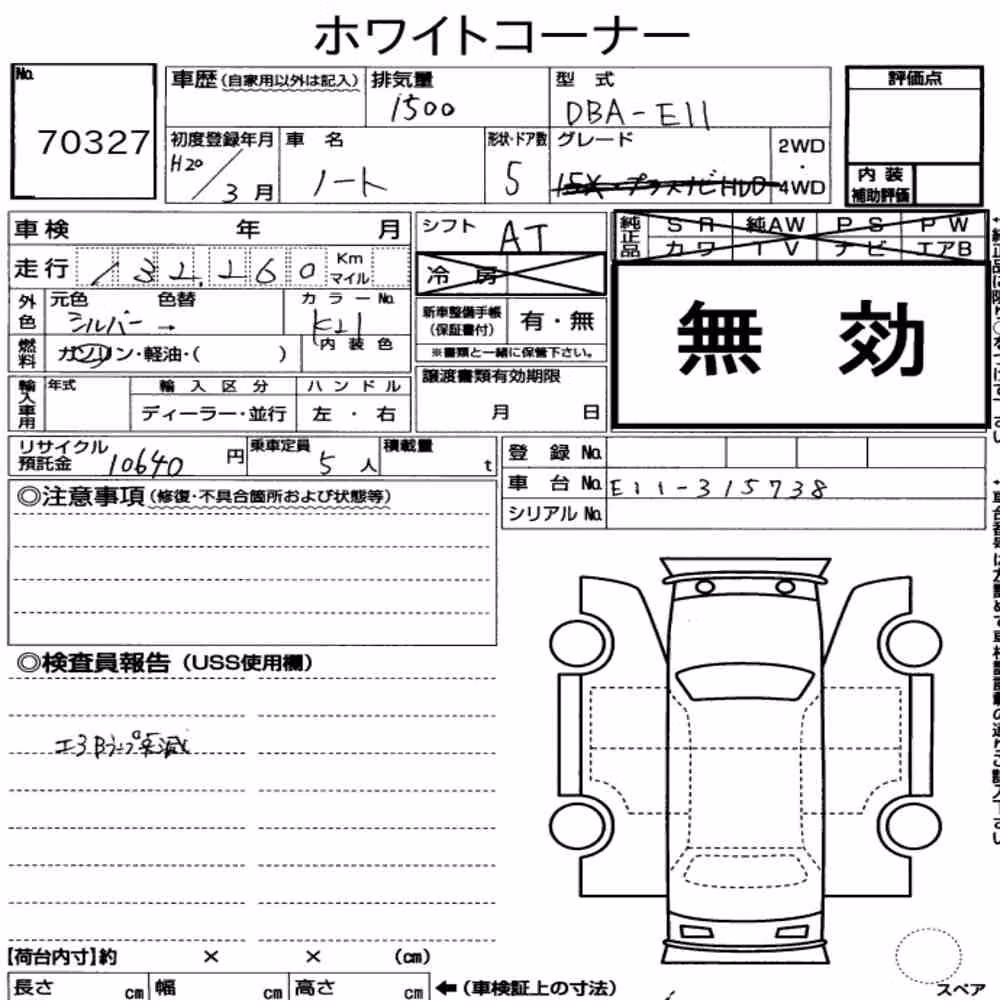 ホワイトコーナー
No. 70327
車歴(自家用以外は記入) 排気量 1500 型式 DBA-E11 評価点
初度登録年月 H20/3月 車名 ノート 形状・ドア数 5 グレード 2WD・4WD
内装補助評価
車検 年 月 シフト AT 純正品 SR 純AW PS PW
カワ TV ナビ エアB
走行 132,260 Km マイル 冷房
外色 元色 シルバー 色替 → カラーNo. K21 内装色
新車整備手帳(保証書付) 有・無
※書類と一緒に保管下さい。
無効
燃料 ガソリン・軽油・( )
譲渡書類有効期限 月 日
輸入車用 年式 輸入区分 ハンドル
ディーラー・並行 左・右
リサイクル預託金 10640円 乗車定員 5人 積載量 t
登録No.
車台No. E11-315738
シリアルNo.
◎注意事項(修復・不具合箇所および状態等)
◎検査員報告(USS使用欄)
【荷台内寸】約 × × (cm)
長さ cm 幅 cm 高さ cm ←(車検証上の寸法)
スペア